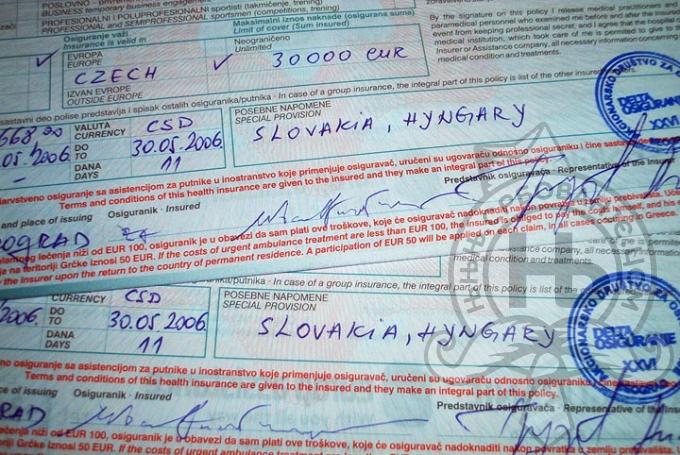 POSLOVNO -
BUSINESS temporary business engagement
PROFESIONALNI I POLUPROFESIONALNI sportisti (takmičenje, trening)
PROFESSIONAL and SEMI-PROFESSIONAL sportsmen (competitions, training)
Osiguranje važi
Insurance is valid in
Maksimalni iznos naknade (osigurana suma)
Limit of cover (Sum insured)
EVROPA
EUROPE
Neograničeno
Unlimited
30000 EUR
CZECH
IZVAN EVROPE
OUTSIDE EUROPE
By the signature on this policy I release medical practitioners and
paramedical personnel who examined me before and after the
event from keeping professional secret, and I agree that the
medical institution, which took care of me is permitted to give to
Insurer or Assistance company, all necessary information concerning
medical condition and treatments.
sastavni deo polise predstavlja i spisak ostalih osiguranika/putnika - In case of a group insurance, the integral part of this policy is list of the other insured
VALUTA
CURRENCY
CSD
POSEBNE NAPOMENE
SPECIAL PROVISION
SLOVAKIA, HYNGARY
.05.2006.
DO
TO
30.05.2006.
DANA
DAYS
11
DELTA
OSIGURANJE
XXVI
zdravstveno osiguranje sa asistencijom za putnike u inostranstvo koje primenjuje osiguravač, uručeni su ugovaraču odnosno osiguraniku i čine sastavni
Terms and conditions of this health insurance are given to the insured and they make an integral part of this policy.
and place of issuing
Osiguranik - Insured
Predstavnik osiguravača - Representative of the Insurer
lečenja niži od EUR 100, osiguranik je u obavezi da sam plati ove troškove, koje će osiguravač nadoknaditi nakon povratka u zemlju prebivališta.
na teritoriji Grčke iznosi 50 EUR. If the costs of urgent ambulance treatment are less than EUR 100, the insured is obliged to pay the costs himself, and
the insurer upon the return to the country of permanent residence. A participation of EUR 50 will be applied on each claim, in all cases occuring in Greece.
company, all necessary information
medical condition and treatments.
osiguranika/putnika - In case of a group insurance, the integral part of this policy is list of the
CURRENCY
CSD
POSEBNE NAPOMENE
SPECIAL PROVISION
SLOVAKIA, HYNGARY
2006.
DO
TO
30.05.2006.
DANA
DAYS
11
DELTA
OSIGURANJE
XXVI
osiguranje sa asistencijom za putnike u inostranstvo koje primenjuje osiguravač, uručeni su ugovaraču odnosno osiguraniku i čine
Terms and conditions of this health insurance are given to the insured and they make an integral part of this policy.
place of issuing
Osiguranik - Insured
Predstavnik osiguravača - Representative of the
lečenja niži od EUR 100, osiguranik je u obavezi da sam plati ove troškove, koje će osiguravač nadoknaditi nakon povratka u zemlju prebivališta.
iznosi 50 EUR. If the costs of urgent ambulance treatment are less than EUR 100, the insured is obliged to pay the costs